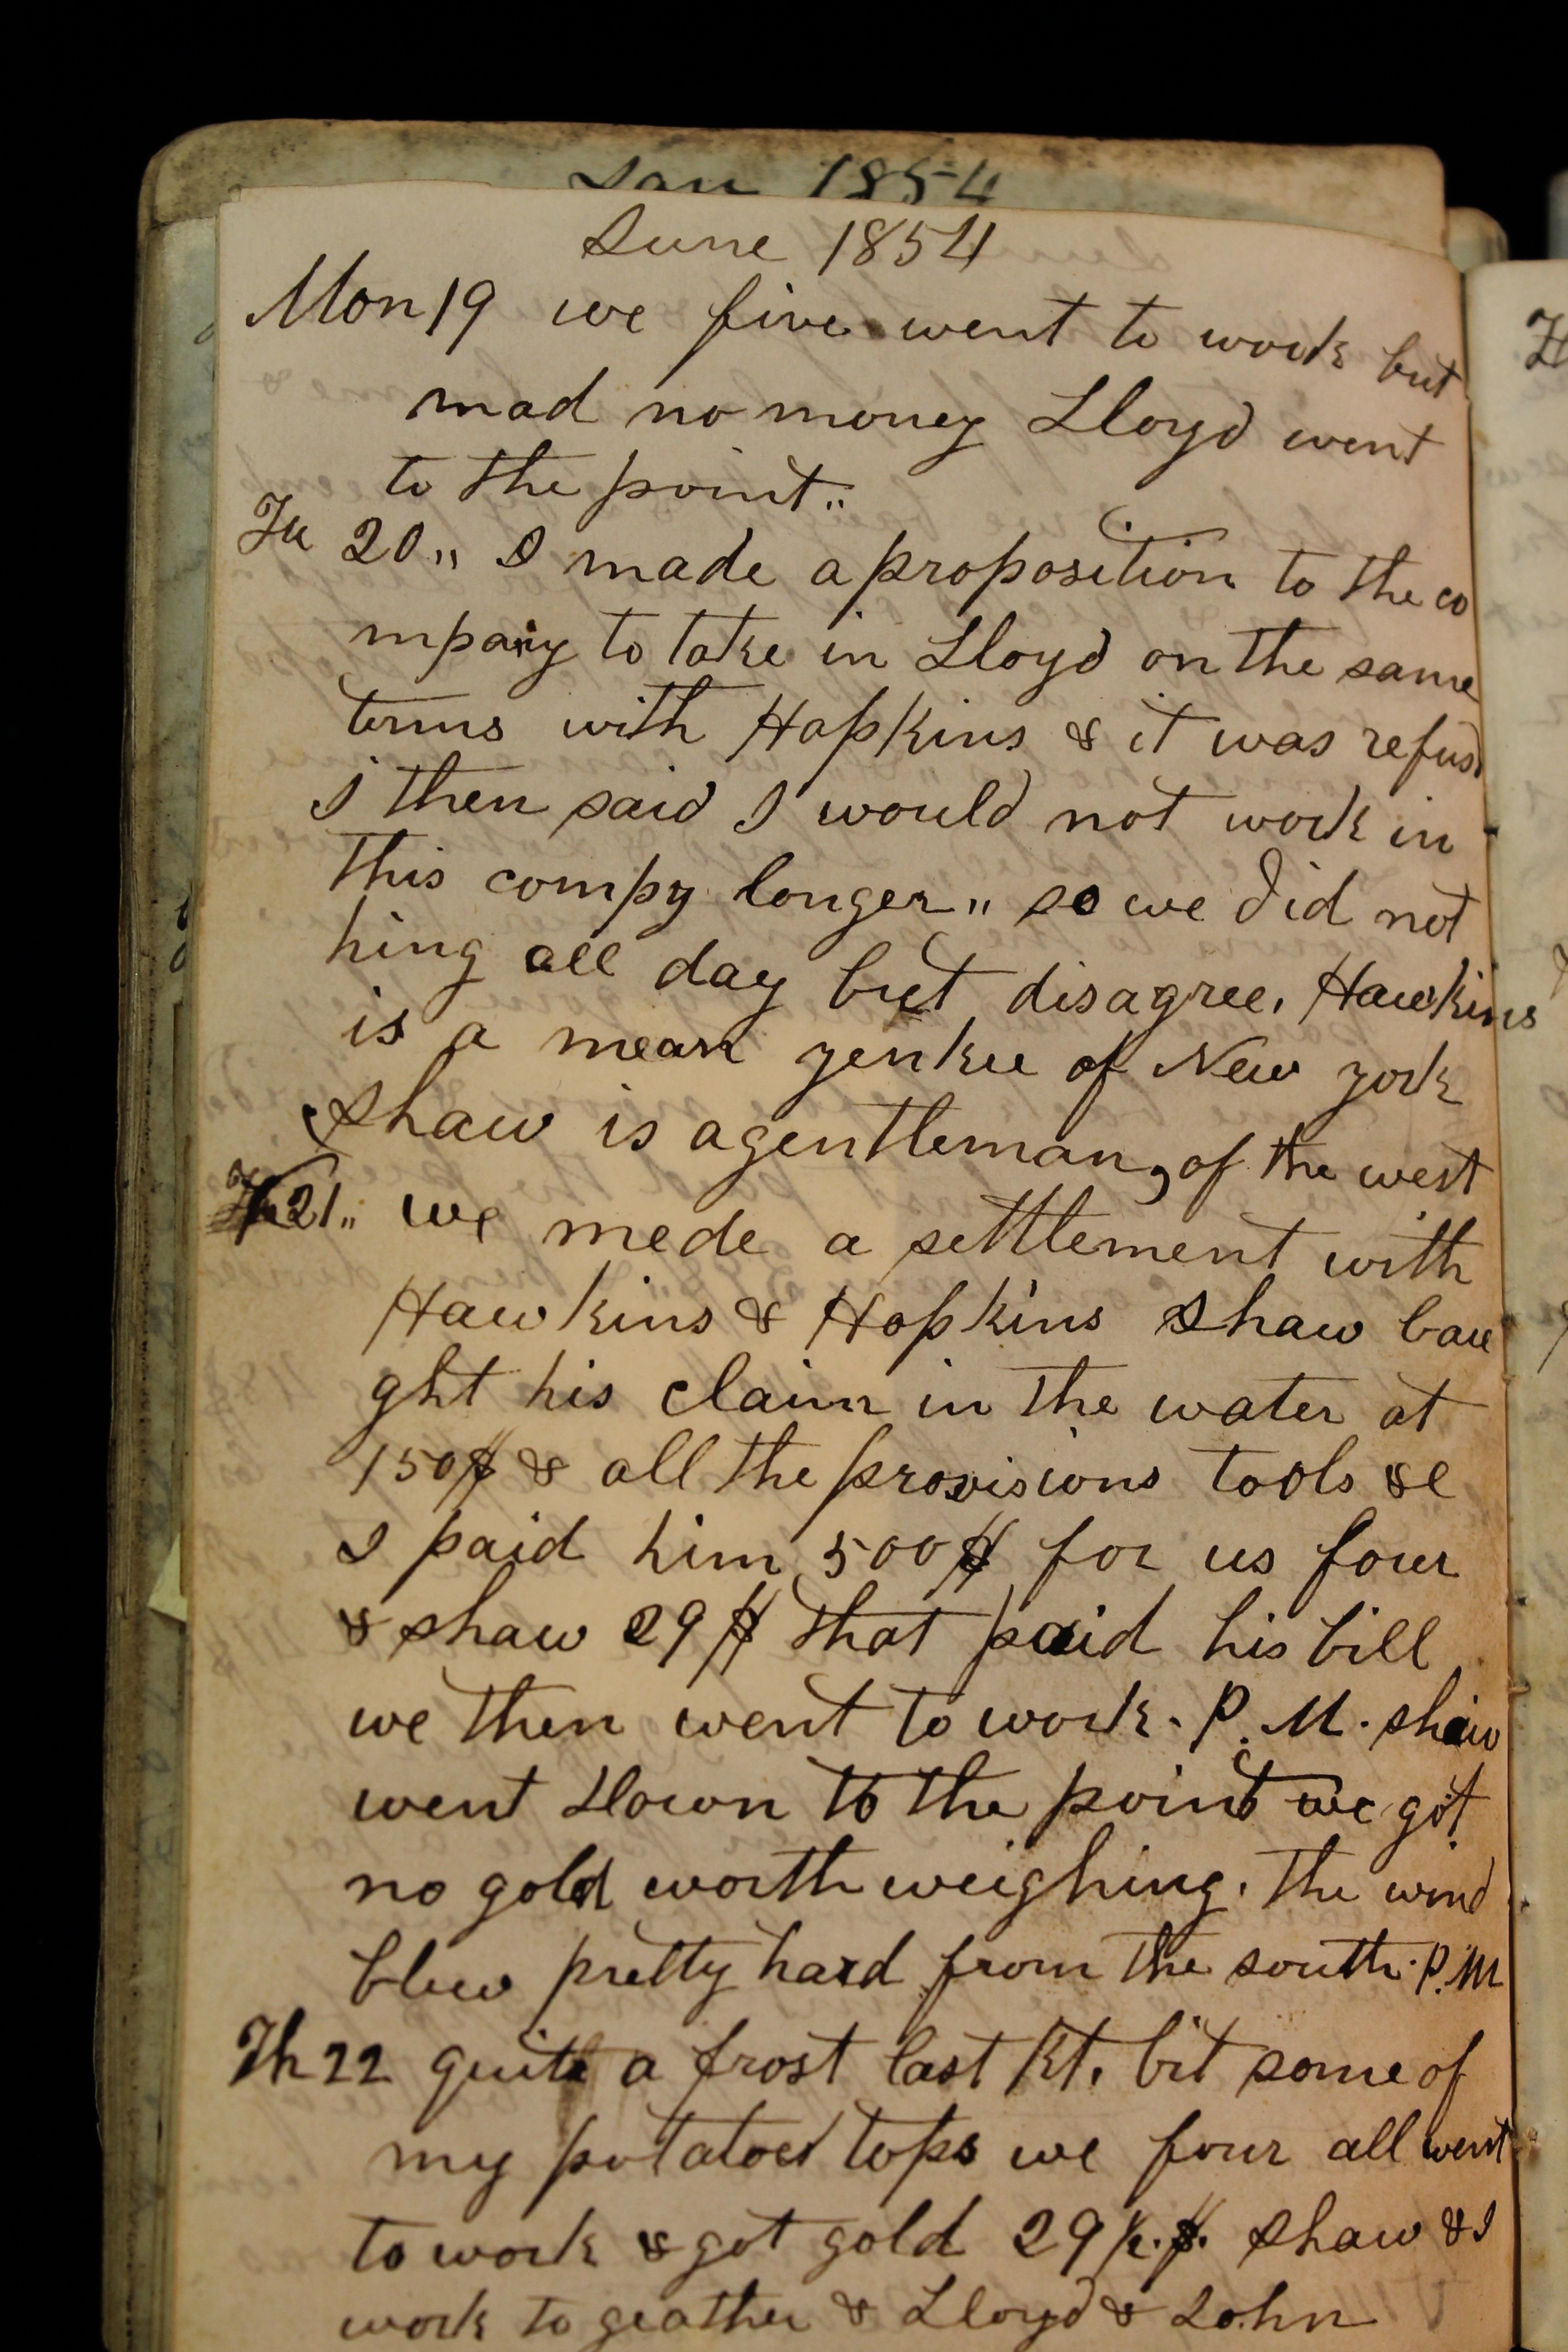 Jan 1854
June 1854
Mon 19 we five went to work but
mad no money Lloyd went
to the point..
Tu 20,, I made a proposition to the co
mpany to take in Lloyd on the same
terms with Hopkins & it was refusd
I then said I would not work in
this compy longer,, so we did not
hing all day but disagree. Hawkins
is a mean yenkee of New york
Shaw is a gentleman, of the west
21.. we mede a settlement with
Hawkins & Hopkins Shaw bau
ght his claim in the water at
150$ & all the provisions tools &c
I paid him 500$ for us four
& Shaw 29$ that paid his bill
we then went to work. P.M. Shaw
went down to the point we got
no gold worth weighing. The wind
blew pretty hard from the south. P.M
Th 22 quite a frost last Nt. bit some of
my potatoes tops we four all went
to work & got gold 29 $. Shaw & I
work to geather & Lloyd & John